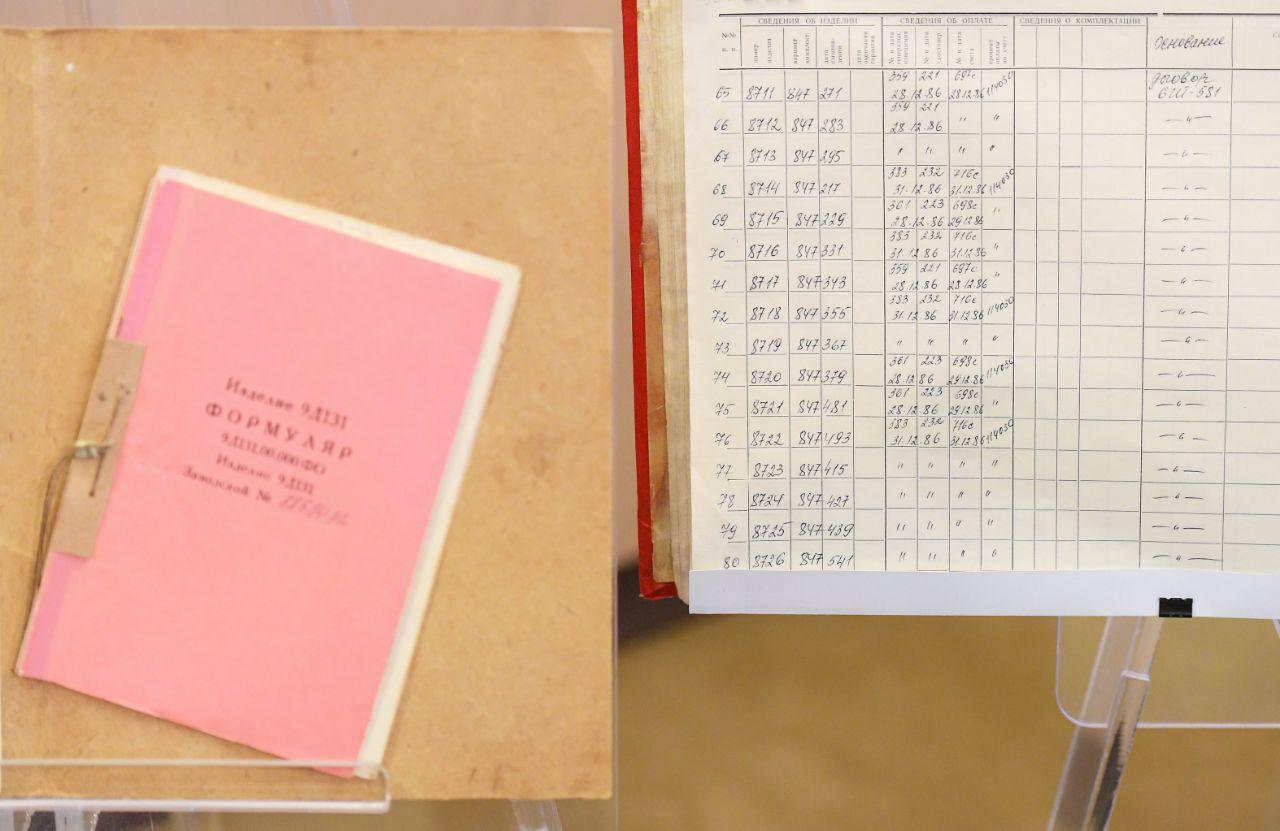 Изделие 9Д131
ФОРМУЛЯР
9Д131.00.000ФО
Изделие 9Д131
Заводской №
СВЕДЕНИЯ ОБ ИЗДЕЛИИ СВЕДЕНИЯ ОБ ОПЛАТЕ СВЕДЕНИЯ О КОМПЛЕКТАЦИИ
№№ п. п. номер изделия вариант комплект. дата изготов-ления дата окончания гарантии № и дата № и дата удостовер. № и дата счета процент оплаты по счету Основание
359 221 697с договор
65 8711 847 271 28.12.86 28.12.86 114030 6Ш-581
359 221
66 8712 847 283 28.12.86 " " — " —
67 8713 847 295 " " " " — " —
383 232 716с
68 8714 847 217 31.12.86 31.12.86 114030 — " —
361 223 698с
69 8715 847 229 28.12.86 29.12.86 " — " —
383 232 716с
70 8716 847 331 31.12.86 31.12.86 " — " —
359 221 697с
71 8717 847 343 28.12.86 28.12.86 " — " —
383 232 716с
72 8718 847 355 31.12.86 31.12.86 114030 — " —
73 8719 847 367 " " " " — " —
361 223 698с
74 8720 847 379 28.12.86 29.12.86 114030 — " —
361 223 698с
75 8721 847 481 28.12.86 29.12.86 " — " —
383 232 716с
76 8722 847 493 31.12.86 31.12.86 114030 — " —
77 8723 847 415 " " " " — " —
78 8724 847 427 " " " " — " —
79 8725 847 439 " " " " — " —
80 8726 847 541 " " " " — " —